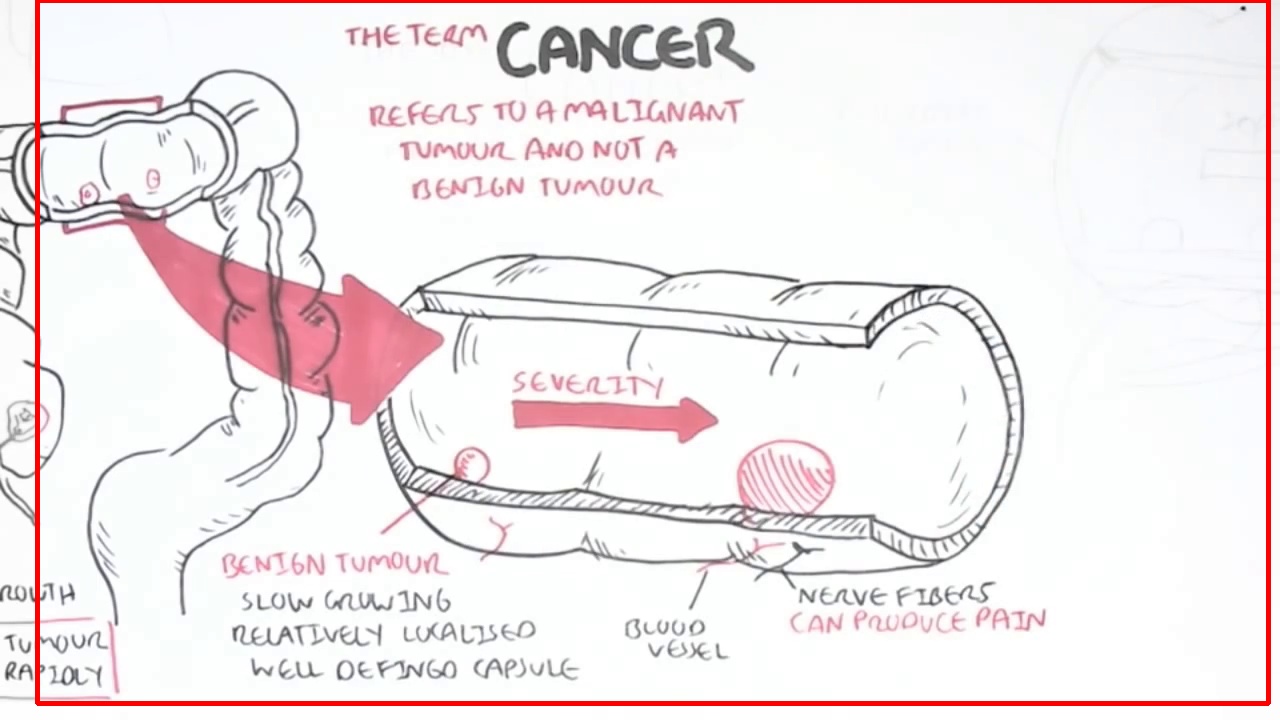 THE TERM CANCER
REFERS TO A MALIGNANT
TUMOUR AND NOT A
BENIGN TUMOUR
SEVERITY
BENIGN TUMOUR
SLOW GROWING
RELATIVELY LOCALISED
WELL DEFINED CAPSULE
BLOOD
VESSEL
NERVE FIBERS
CAN PRODUCE PAIN
ROWTH
TUMOUR
RAPIDLY